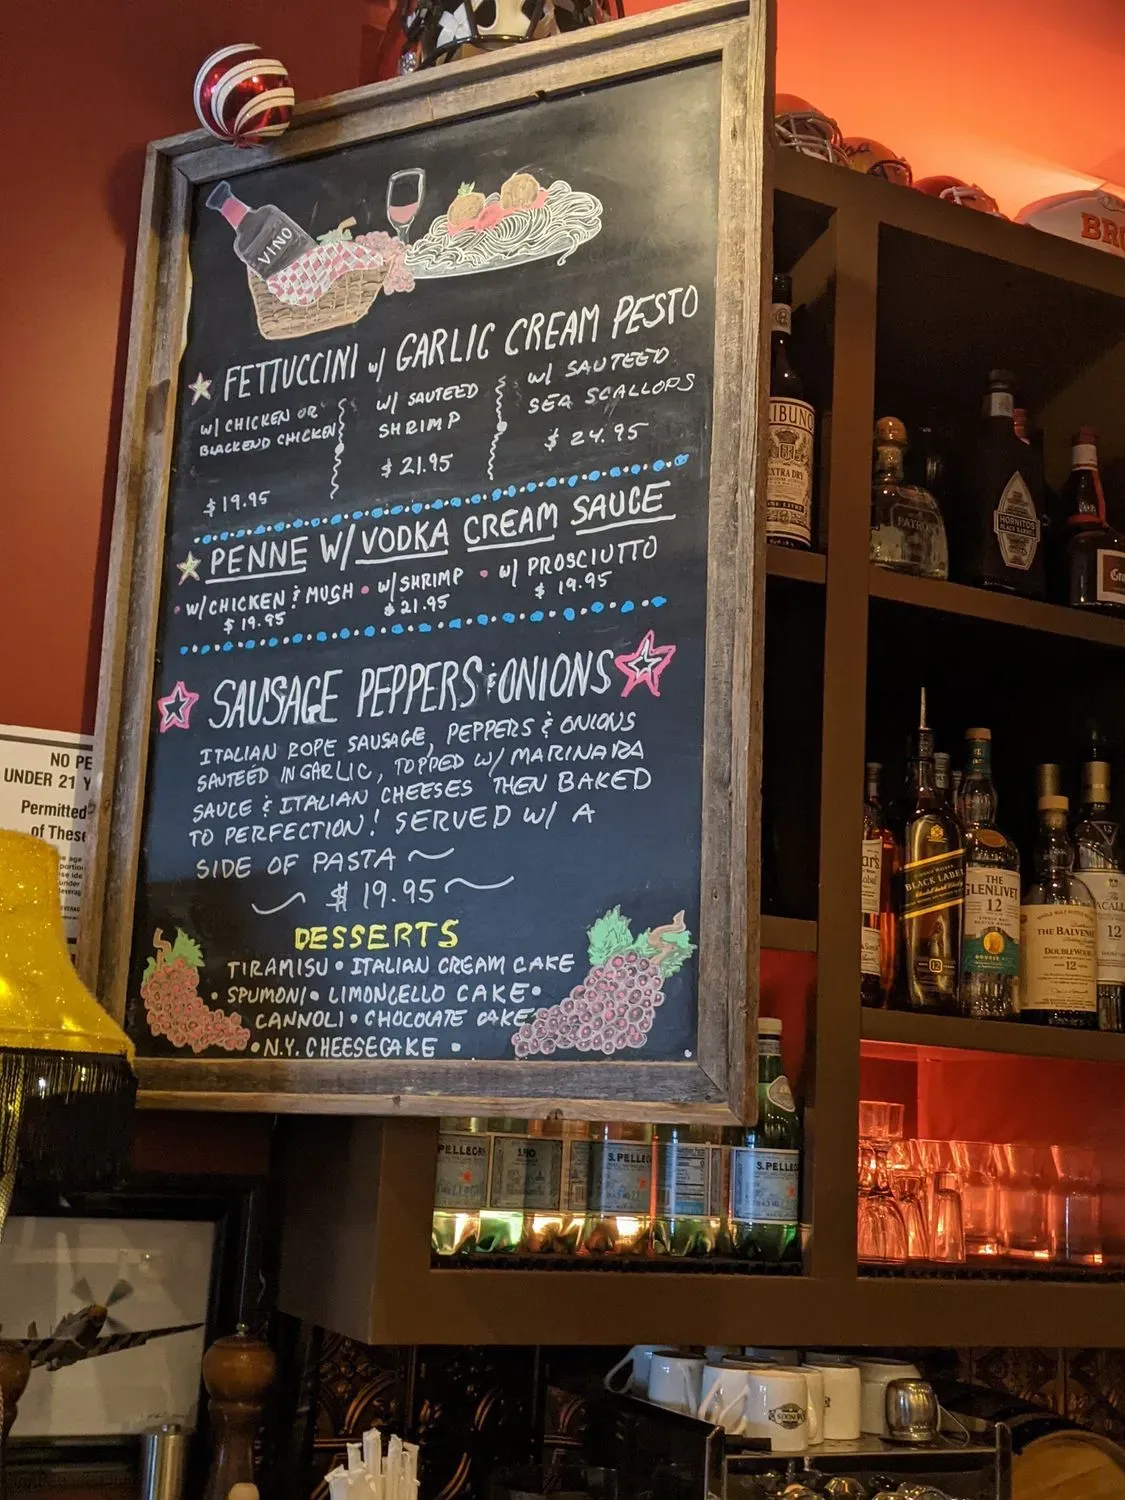 VINO
FETTUCCINI w/ GARLIC CREAM PESTO
W/ CHICKEN OR
BLACKEND CHICKEN
$19.95
W/ SAUTEED
SHRIMP
$21.95
W/ SAUTEED
SEA SCALLOPS
$24.95
PENNE W/ VODKA CREAM SAUCE
• W/CHICKEN & MUSH
$19.95
• W/SHRIMP
$21.95
• W/ PROSCIUTTO
$19.95
SAUSAGE PEPPERS & ONIONS
ITALIAN ROPE SAUSAGE, PEPPERS & ONIONS
SAUTEED IN GARLIC, TOPPED W/ MARINARA
SAUCE & ITALIAN CHEESES THEN BAKED
TO PERFECTION! SERVED W/ A
SIDE OF PASTA ~
~ $19.95 ~
DESSERTS
TIRAMISU • ITALIAN CREAM CAKE
• SPUMONI • LIMONCELLO CAKE •
CANNOLI • CHOCOLATE CAKE
• N.Y. CHEESECAKE •
NO PE
UNDER 21 Y
Permitted
of These
BR
LIBUNG
EXTRA DRY
PATRÓN
HORNITOS
BLACK BARREL
BLACK LABEL
12
THE
GLENLIVET
12
THE BALVENIE
DOUBLEWOOD
12
MACALL
12
PELLEGR
S.PELLEG
S.PELL